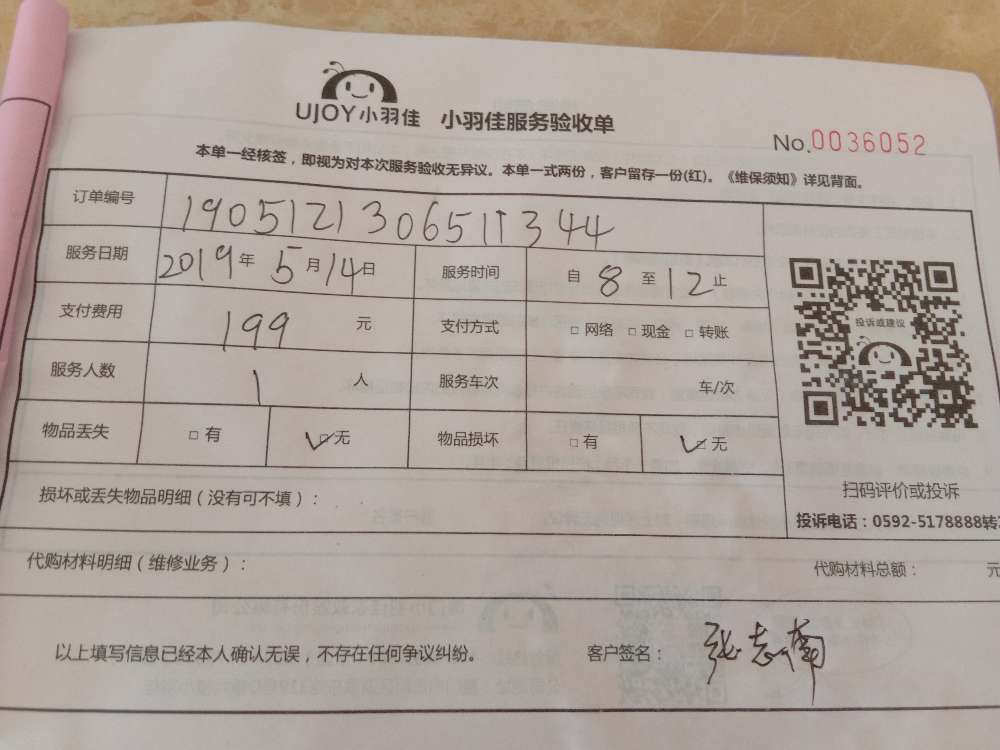 UJOY小羽佳 小羽佳服务验收单
No.0036052
本单一经核签，即视为对本次服务验收无异议。本单一式两份，客户留存一份(红)。《维保须知》详见背面。
订单编号 1905121306511344
服务日期 2019年5月14日 服务时间 自8至12止
支付费用 199 元 支付方式 □网络 □现金 □转账
投诉或建议
服务人数 1 人 服务车次 车/次
物品丢失 □有 ✓□无 物品损坏 □有 ✓□无
扫码评价或投诉
损坏或丢失物品明细（没有可不填）：
投诉电话：0592-5178888转
代购材料明细（维修业务）： 代购材料总额： 元
以上填写信息已经本人确认无误，不存在任何争议纠纷。 客户签名：张志